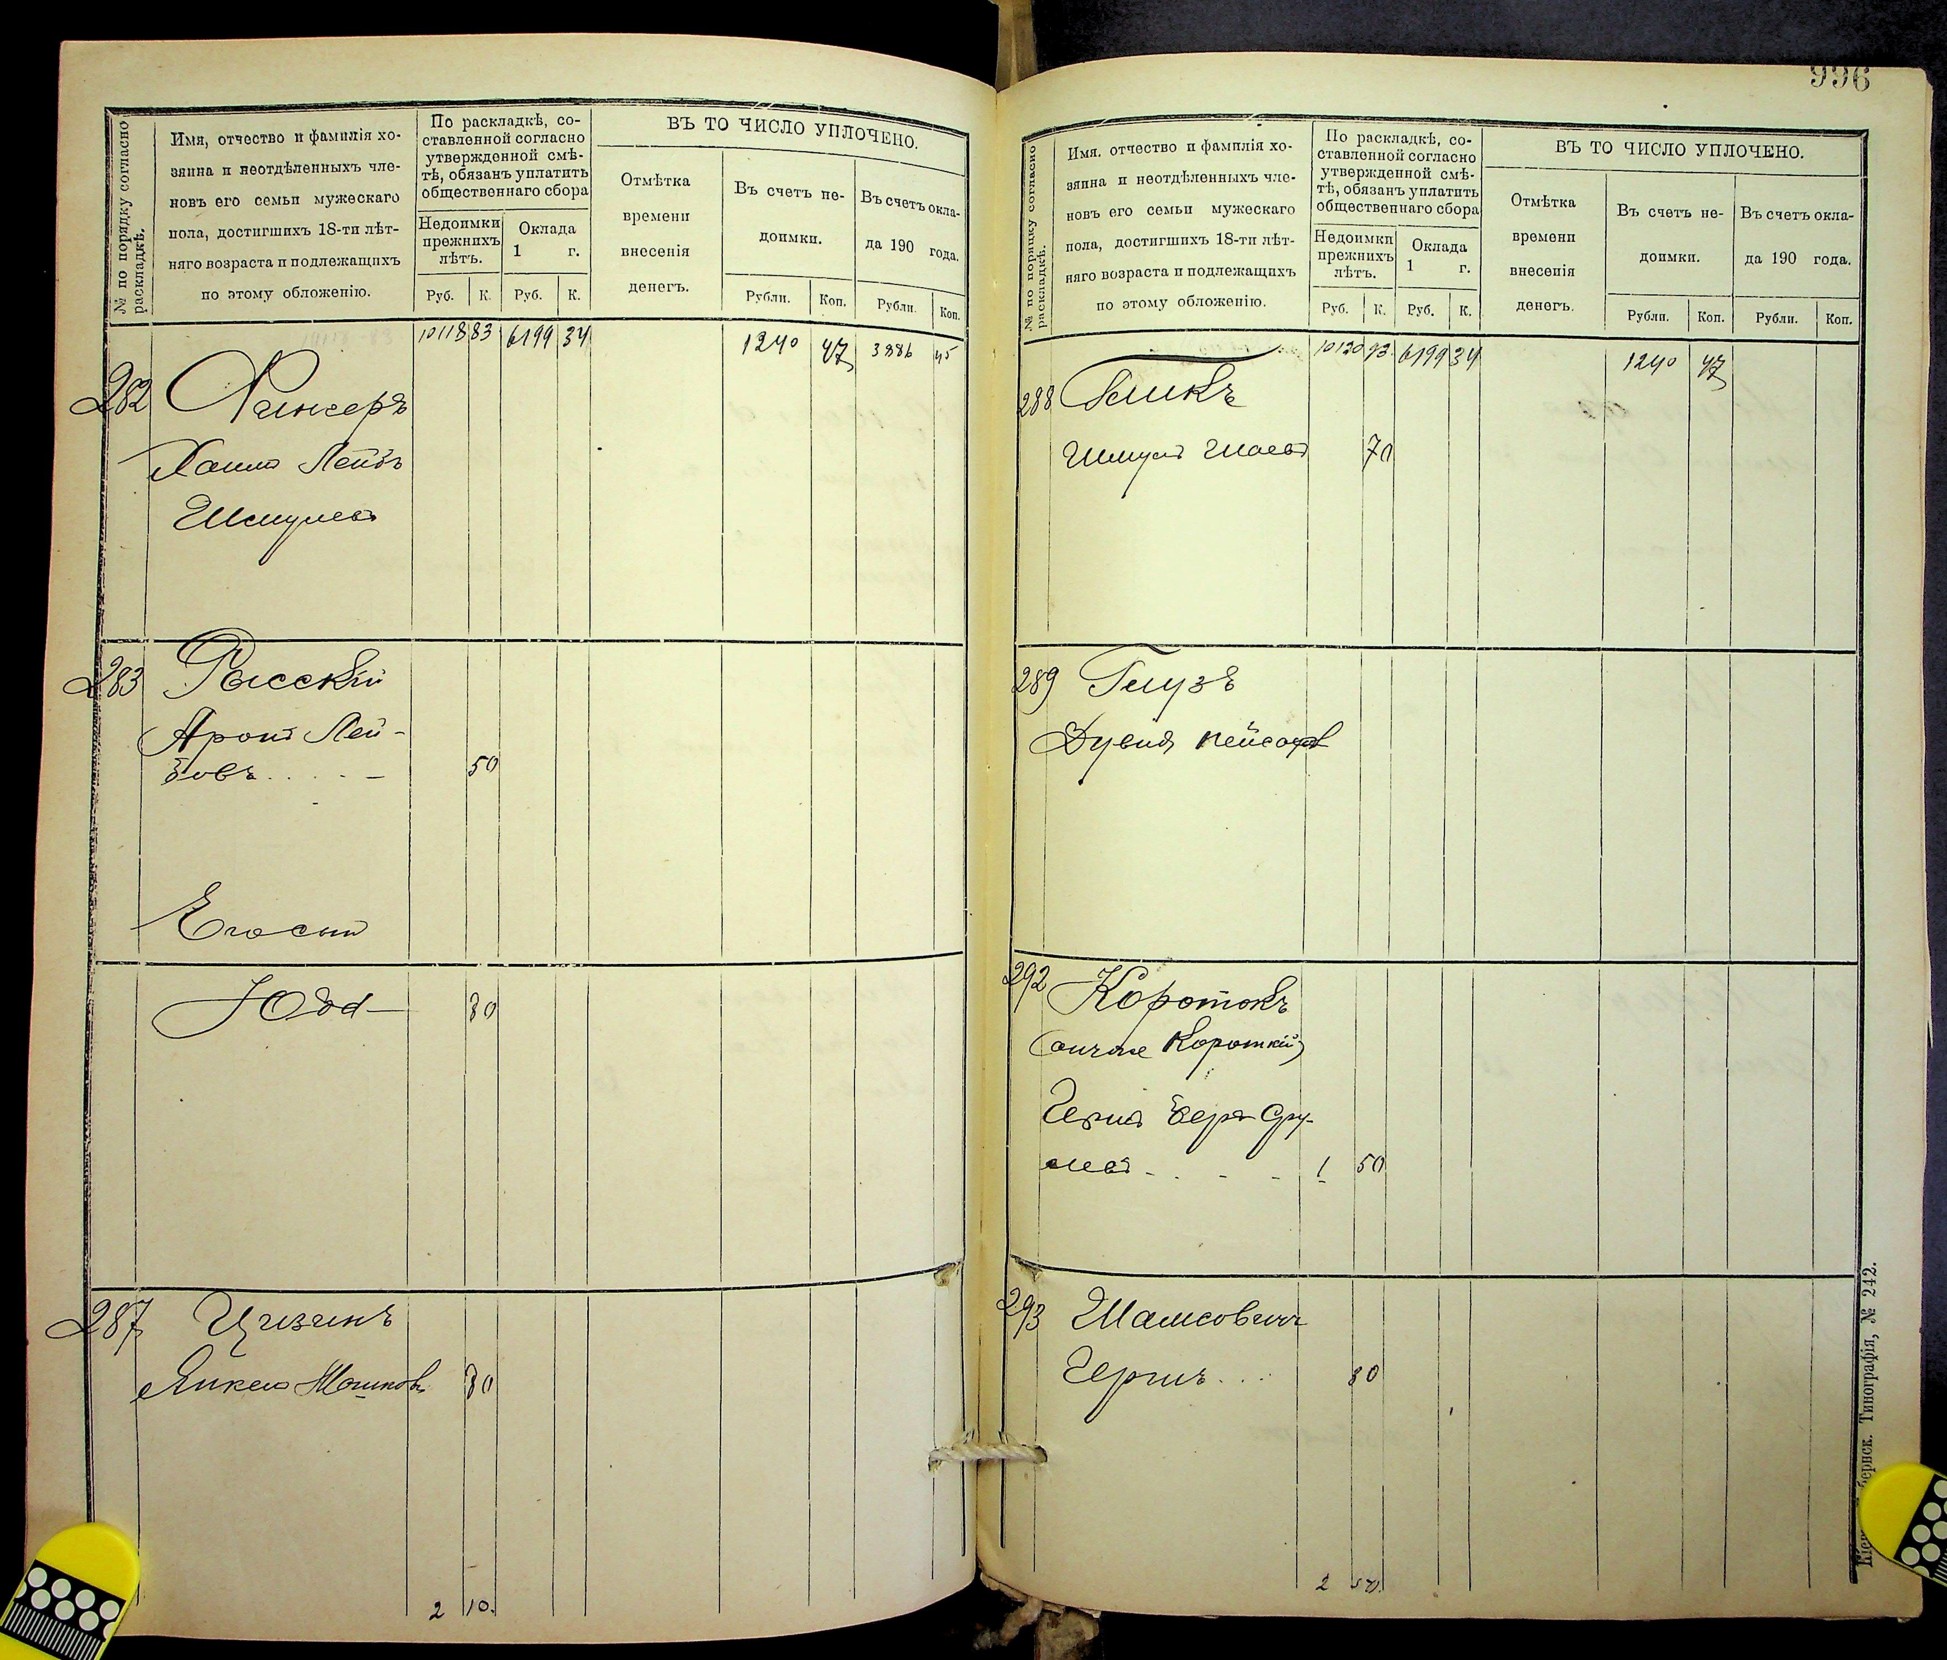 № по порядку согласно раскладкѣ.
Имя, отчество и фамилія хо-
зяина и неотдѣленныхъ чле-
новъ его семьи мужескаго
пола, достигшихъ 18-ти лѣт-
няго возраста и подлежащихъ
по этому обложенію.
По раскладкѣ, со-
ставленной согласно
утвержденной смѣ-
тѣ, обязанъ уплатить
общественнаго сбора
Недоимки
прежнихъ
лѣтъ.
Оклада
1 г.
Руб. К. Руб. К.
ВЪ ТО ЧИСЛО УПЛОЧЕНО.
Отмѣтка
времени
внесенія
денегъ.
Въ счетъ не-
доимки.
Рубли. Коп.
Въ счетъ окла-
да 190 года.
Рубли. Коп.
10118 83 6199 34 1240 47 3886 45
282
Хаимъ Лейбъ
Шмулевъ
283 Рысскій
Аронъ Лей-
бовъ . . . . – 50
Его сынъ
Юда – 80
287 Цизинъ
Янкель Мошковъ 80
2 10.
996
№ по порядку согласно раскладкѣ.
Имя, отчество и фамилія хо-
зяина и неотдѣленныхъ чле-
новъ его семьи мужескаго
пола, достигшихъ 18-ти лѣт-
няго возраста и подлежащихъ
по этому обложенію.
По раскладкѣ, со-
ставленной согласно
утвержденной смѣ-
тѣ, обязанъ уплатить
общественнаго сбора
Недоимки
прежнихъ
лѣтъ.
Оклада
1 г.
Руб. К. Руб. К.
ВЪ ТО ЧИСЛО УПЛОЧЕНО.
Отмѣтка
времени
внесенія
денегъ.
Въ счетъ не-
доимки.
Рубли. Коп.
Въ счетъ окла-
да 190 года.
Рубли. Коп.
10120 93 6199 34 1240 47
288 Бликъ
Шмуль Шаевъ 70
289 Глузъ
Дувидъ Пейсаховъ
292 Коротокъ
(онъ же Короткій)
Герш Беръ Сру-
левъ - . - - 1 50
293 Шамсовичъ
Гершъ . . . 80
2 50.
Типографія, № 242.